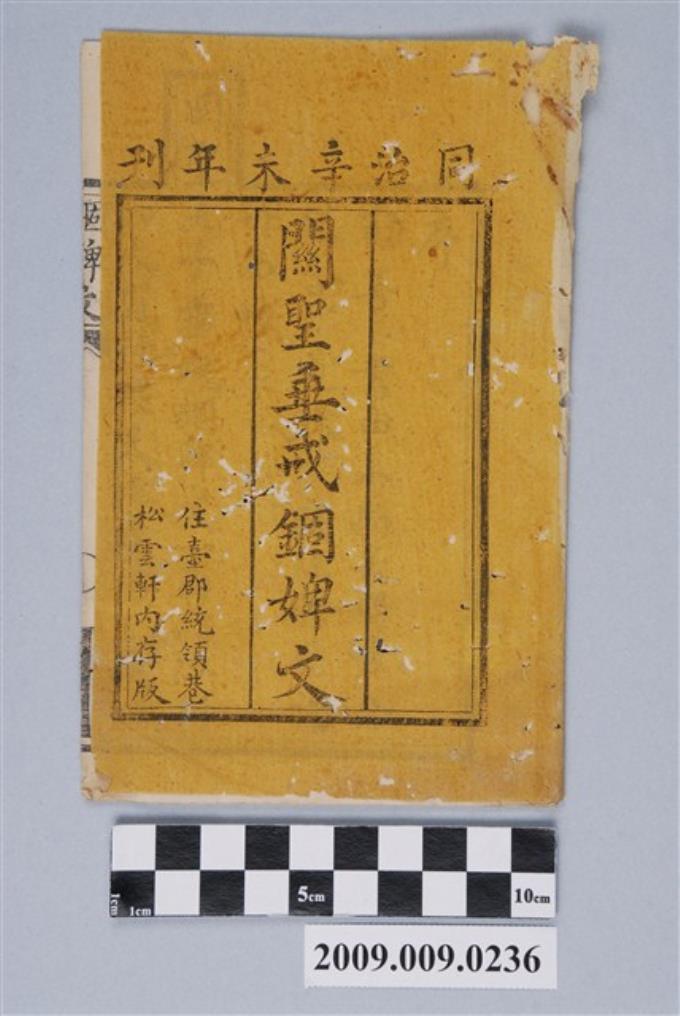 同治辛未年刊
關聖垂戒錮婢文
住臺郡統領巷
松雲軒內存版
婢文
1cm
1cm
5cm
10cm
2009.009.0236